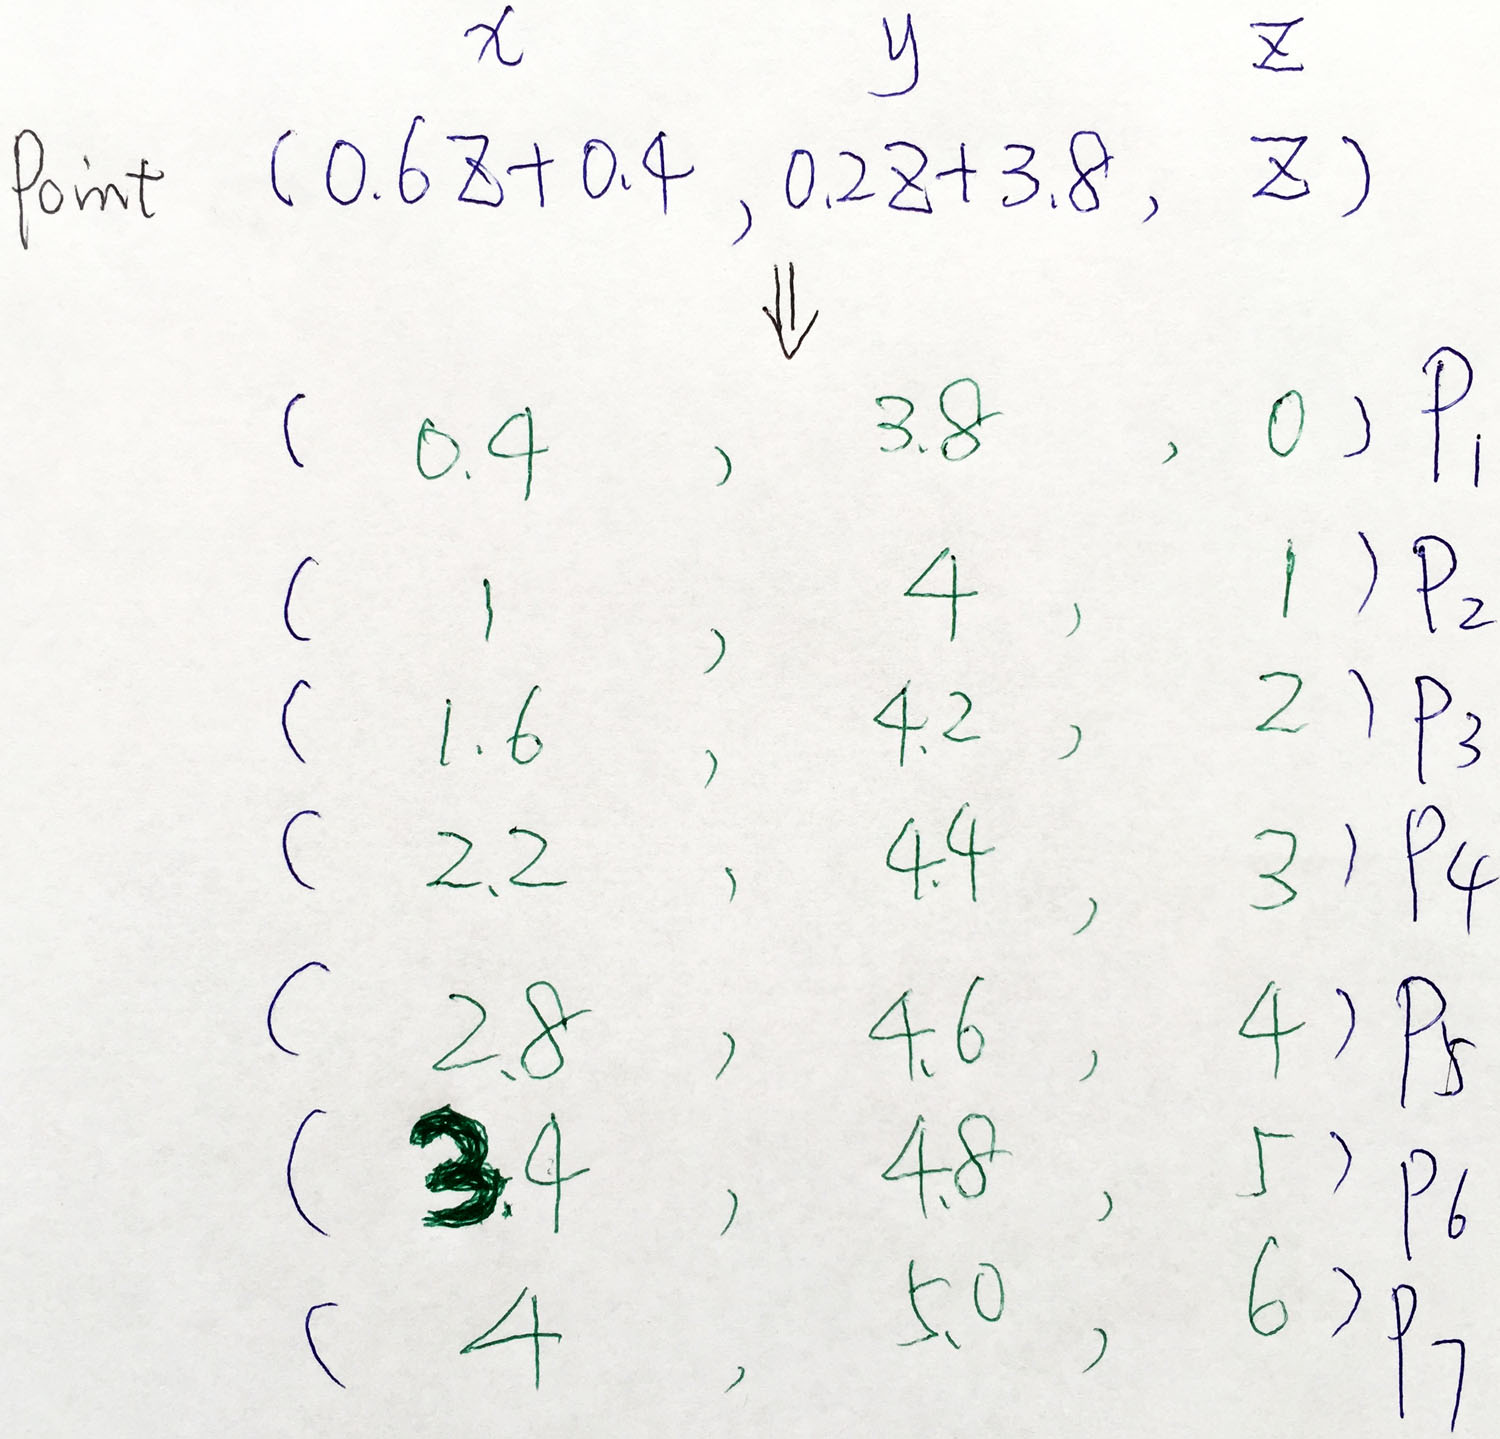 x y z
Point (0.6z+0.4, 0.2z+3.8, z)
⇓
(0.4, 3.8, 0) P1
(1, 4, 1) P2
(1.6, 4.2, 2) P3
(2.2, 4.4, 3) P4
(2.8, 4.6, 4) P5
(3.4, 4.8, 5) P6
(4, 5.0, 6) P7